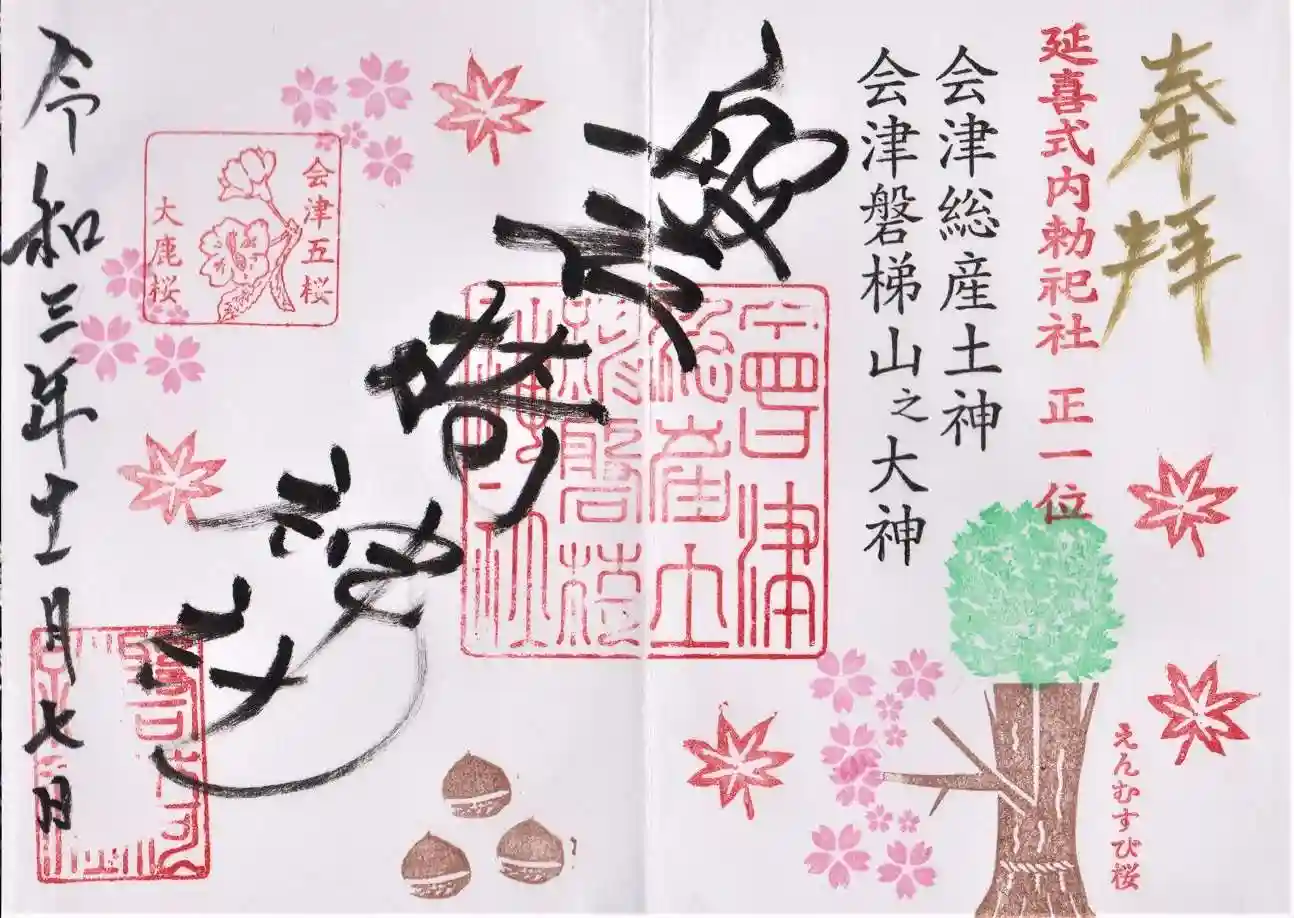 奉拝
延喜式内勅祀社 正一位
会津総産土神
会津磐梯山之大神
磐椅神社
会津五桜
大鹿桜
令和三年十一月七日
えんむすび桜